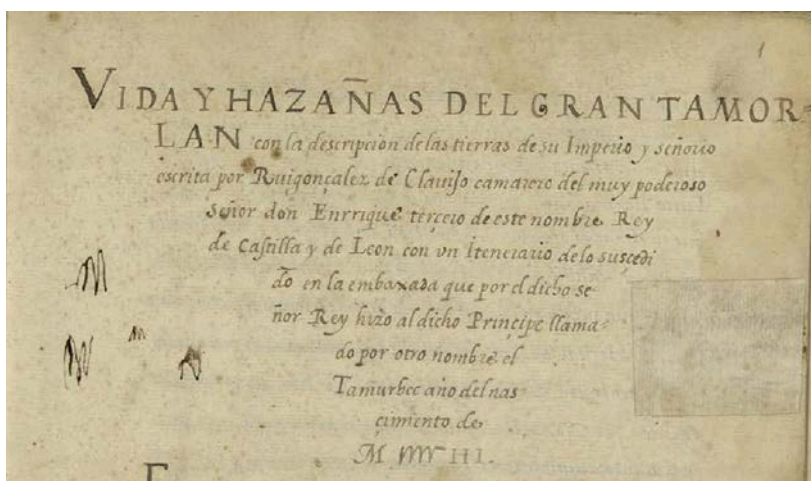 1
VIDA Y HAZAÑAS DEL GRAN TAMOR-
LAN con la descripcion de las tierras de su Imperio y señorio
escrita por Ruigonçalez de Clauijo camarero del muy poderoso
Señor don Enrrique terçero de este nombre Rey
de Castilla y de Leon con vn Itenerario de lo susçedi
do en la embaxada que por el dicho se
ñor Rey hizo al dicho Principe llama
do por otro nombre el
Tamurbec año del nas
çimiento de